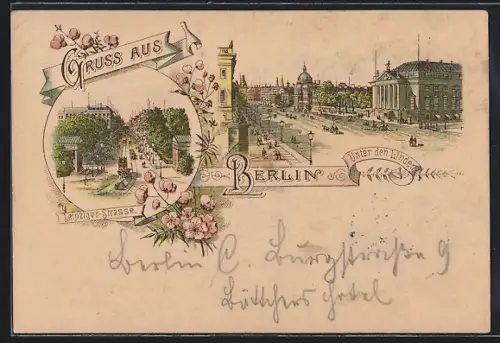 GRUSS AUS
BERLIN
Unter den Linden
Leipziger-Strasse.
Berlin C. Burgstraße 9
Böttchers Hotel